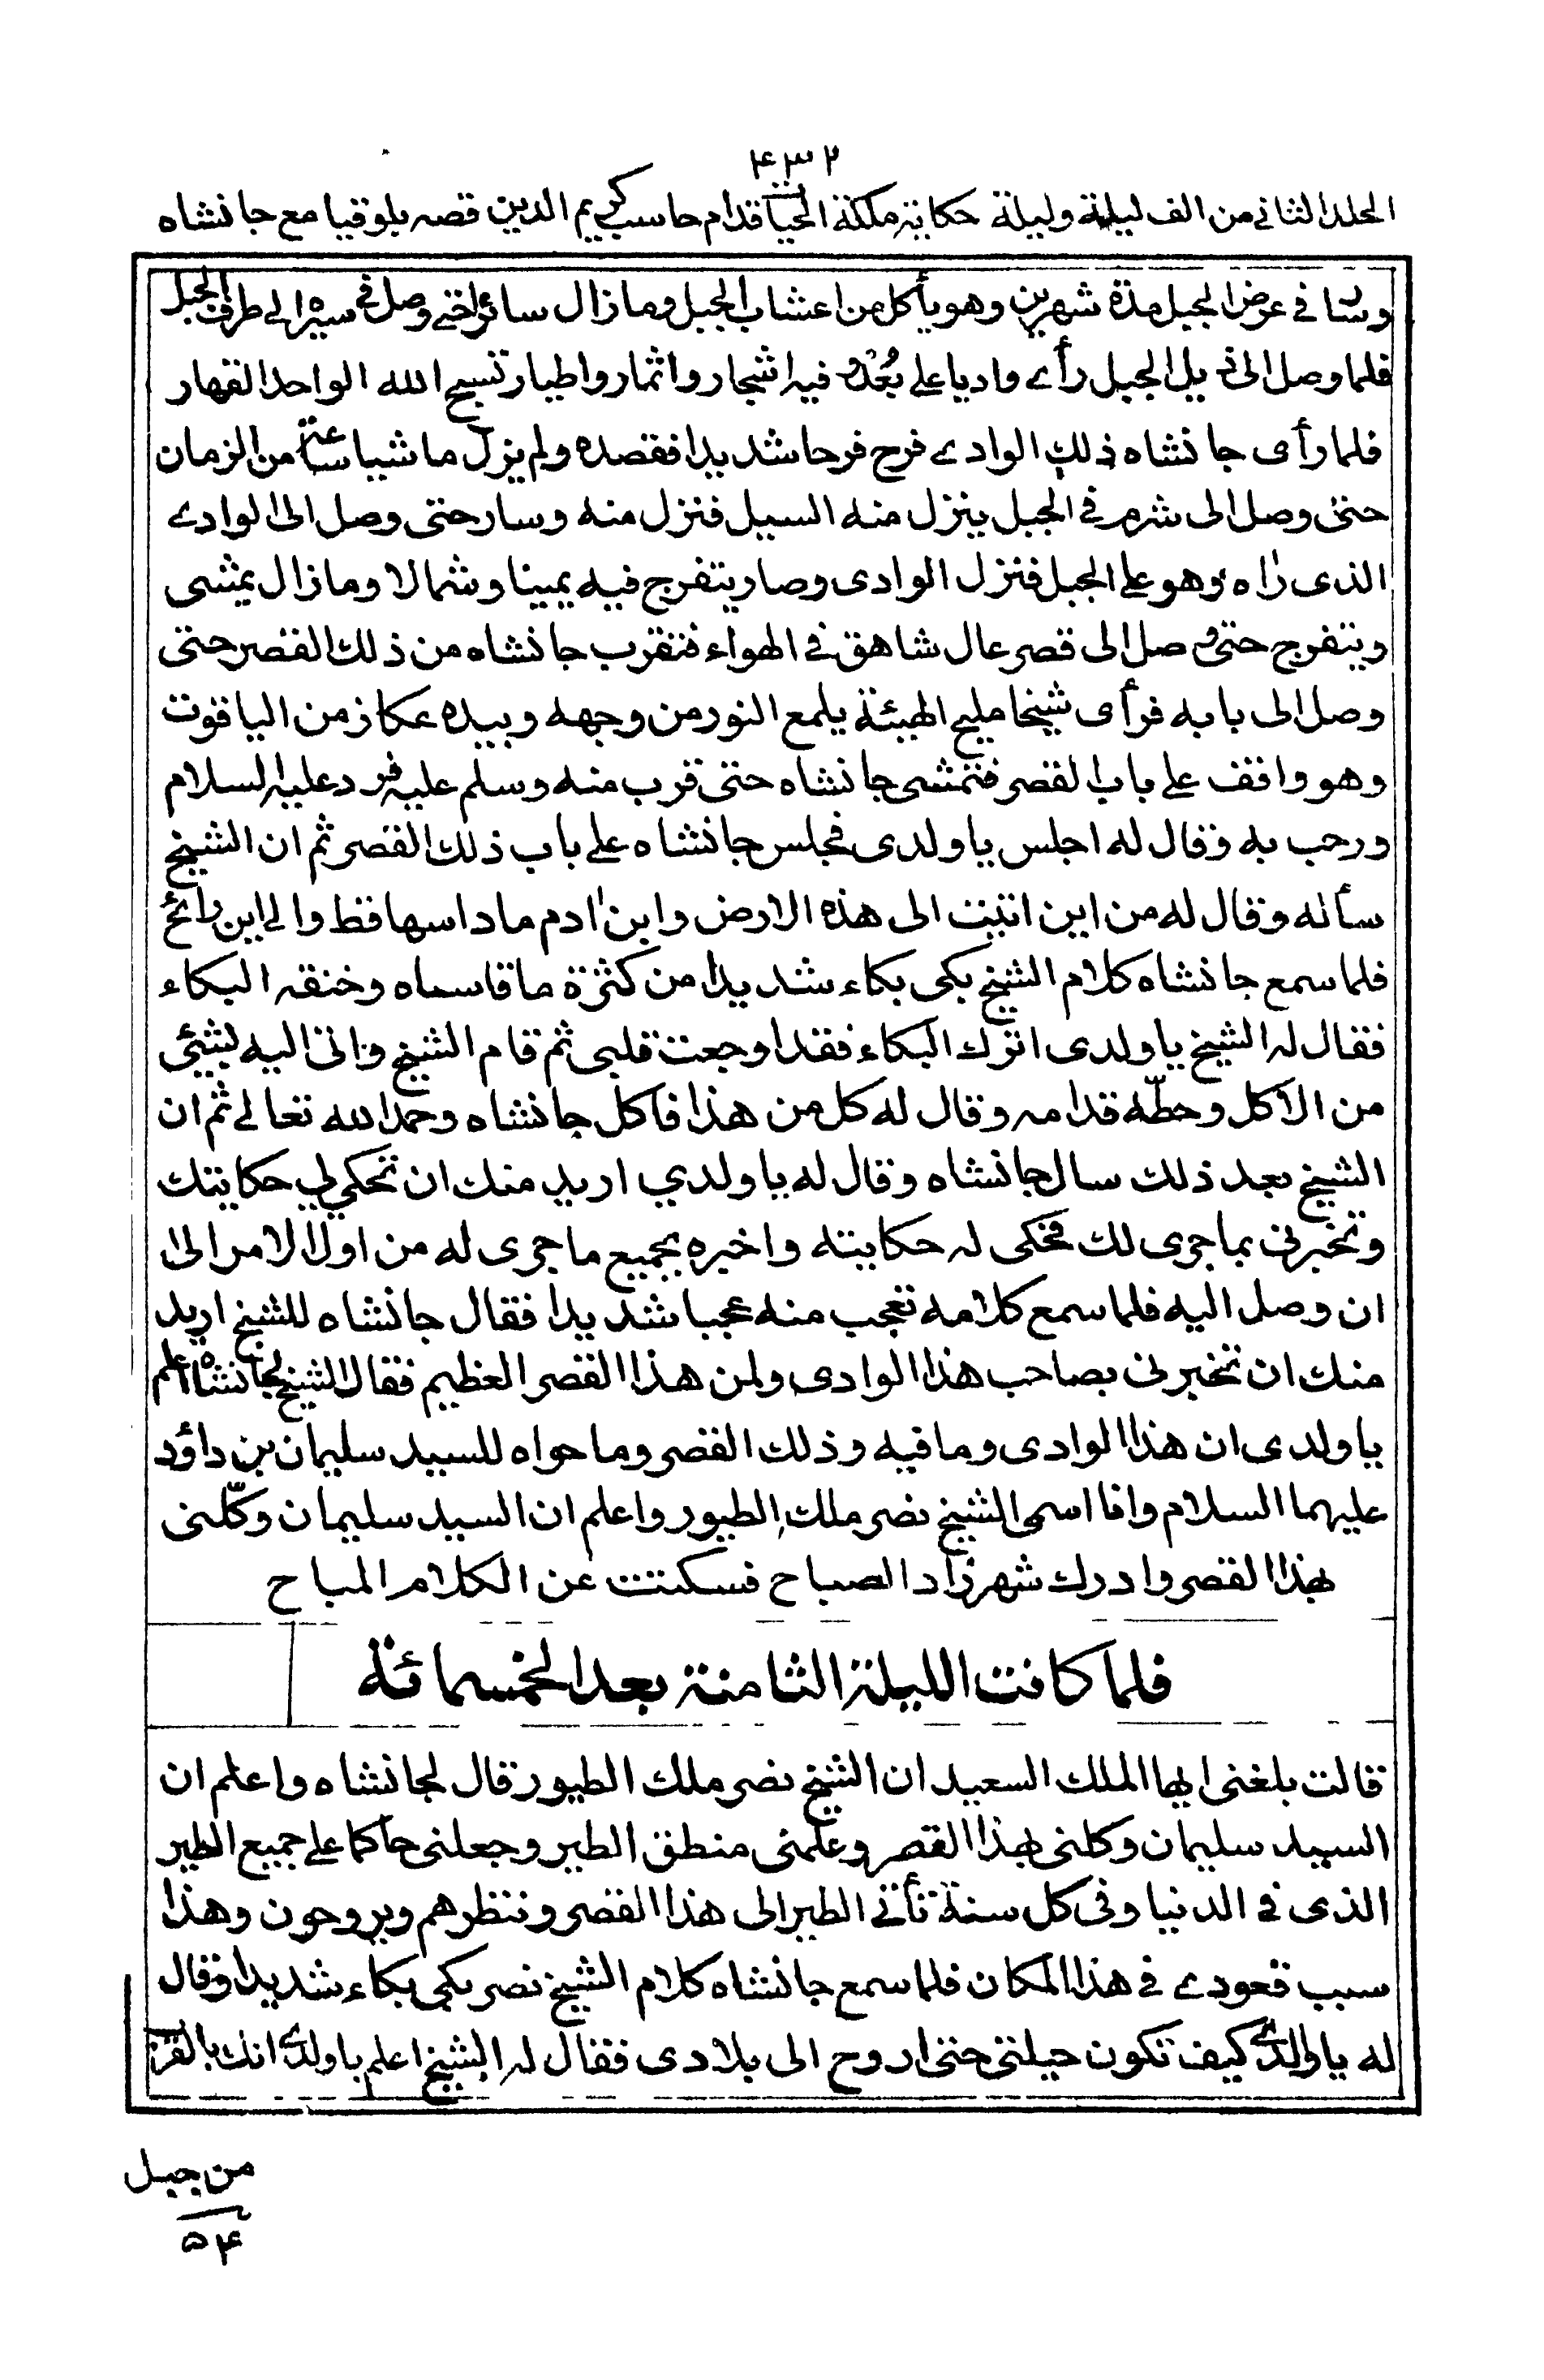 ۴۳۲
المجلد الثاني من الف ليلة وليلة حكاية ملكة الحيا قدام حاسب كريم الدين قصه بلوقيا مع جانشاه
وسار في عرض الجبل مدة شهرين وهو يأكل من اعشاب الجبل وما زال سائرا حتى وصل في سيره الى طرف الجبل
فلما وصل الى ذيل الجبل رأى واديا على بُعْد و فيه اشجار واثمار واطيار تسبح الله الواحد القهار
فلما رأى جانشاه ذلك الوادي فرح فرحا شديدا فقصده ولم يزل ماشيا ساعة من الزمان
حتى وصل الى شرم في الجبل ينزل منه السيل فنزل منه وسار حتى وصل الى الوادي
الذى راٰه وهو على الجبل فنزل الوادى وصار يتفرج فيه يمينا وشمالا وما زال يمشى
ويتفرج حتى وصل الى قصر عال شاهق في الهواء فتقرب جانشاه من ذلك القصر حتى
وصل الى بابه فرأى شيخا مليح الهيئة يلمع النور من وجهه وبيده عكاز من الياقوت
وهو واقف على باب القصر فتمشى جانشاه حتى قرب منه وسلم عليه فرد عليه السلام
ورحب به وقال له اجلس يا ولدى فجلس جانشاه على باب ذلك القصر ثم ان الشيخ
سأله وقال له من اين اتيت الى هذه الارض وابن اٰدم ما داسها قط والى اين رائح
فلما سمع جانشاه كلام الشيخ بكى بكاء شديدا من كثرة ما قاساه وخنقه البكاء
فقال له الشيخ يا ولدى اترك البكاء فقد اوجعت قلبى ثم قام الشيخ واتى اليه بشيئ
من الاكل وحطّه قدامه وقال له كل من هذا فاكل جانشاه وحمد الله تعالى ثم ان
الشيخ بعد ذلك سال جانشاه وقال له يا ولدي اريد منك ان تحكي لي حكايتك
وتخبرني بما جرى لك فحكى له حكايته واخبره بجميع ما جرى له من اول الامر الى
ان وصل اليه فلما سمع كلامه تعجب منه عجبا شديدا فقال جانشاه للشيخ اريد
منك ان تخبرنى بصاحب هذا الوادى ولمن هذا القصر العظيم فقال الشيخ لجانشاه اعلم
يا ولدى ان هذا الوادى وما فيه وذلك القصر وما حواه للسيد سليمان بن داؤد
عليهما السلام وانا اسمى الشيخ نصر ملك الطيور واعلم ان السيد سليمان وكّلنى
بهذا القصر وادرك شهرزاد الصباح فسكتت عن الكلام المباح
فلما كانت الليلة الثامنة بعد الخمسمائة
قالت بلغنى ايها الملك السعيد ان الشيخ نصر ملك الطيور قال لجانشاه واعلم ان
السيد سليمان وكلنى بهذا القصر وعلمنى منطق الطير وجعلنى حاكما على جميع الطير
الذى في الدنيا وفى كل سنة تأتي الطير الى هذا القصر وننظرهم ويروحون وهذا
سبب قعودي في هذا المكان فلما سمع جانشاه كلام الشيخ نصر بكى بكاء شديدا وقال
له يا والدي كيف تكون حيلتى حتى اروح الى بلادى فقال له الشيخ اعلم يا ولدي انك بالقرب
من جبل
۵۴